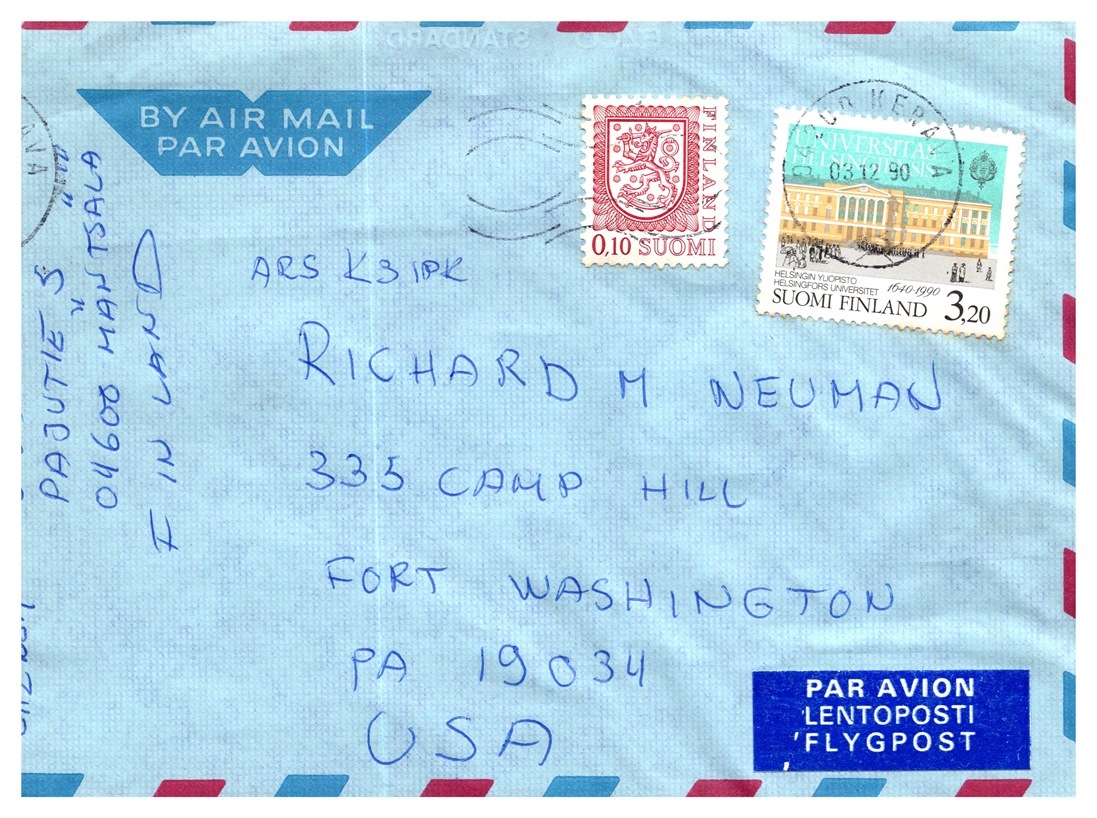 BY AIR MAIL
PAR AVION
PAJUTIE 5
04600 MÄNTSÄLÄ
FINLAND
KERAVA
03 12 90
FINLAND
0,10 SUOMI
UNIVERSITAS
HELSINGIENSIS
HELSINGIN YLIOPISTO
HELSINGFORS UNIVERSITET 1640-1990
SUOMI FINLAND 3,20
ARS K3IPK
RICHARD M NEUMAN
335 CAMP HILL
FORT WASHINGTON
PA 19034
USA
PAR AVION
LENTOPOSTI
FLYGPOST